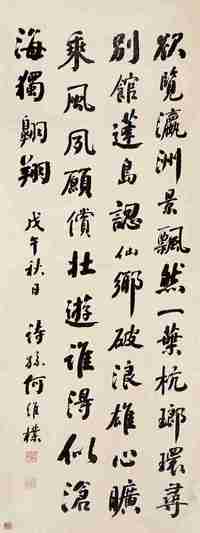 欲覽瀛洲景飄然一葉杭瑯環尋
別館蓬島認仙鄉破浪雄心曠
乘風夙願償壯遊誰得似滄
海獨翱翔
戊午秋日
詩孫何維樸